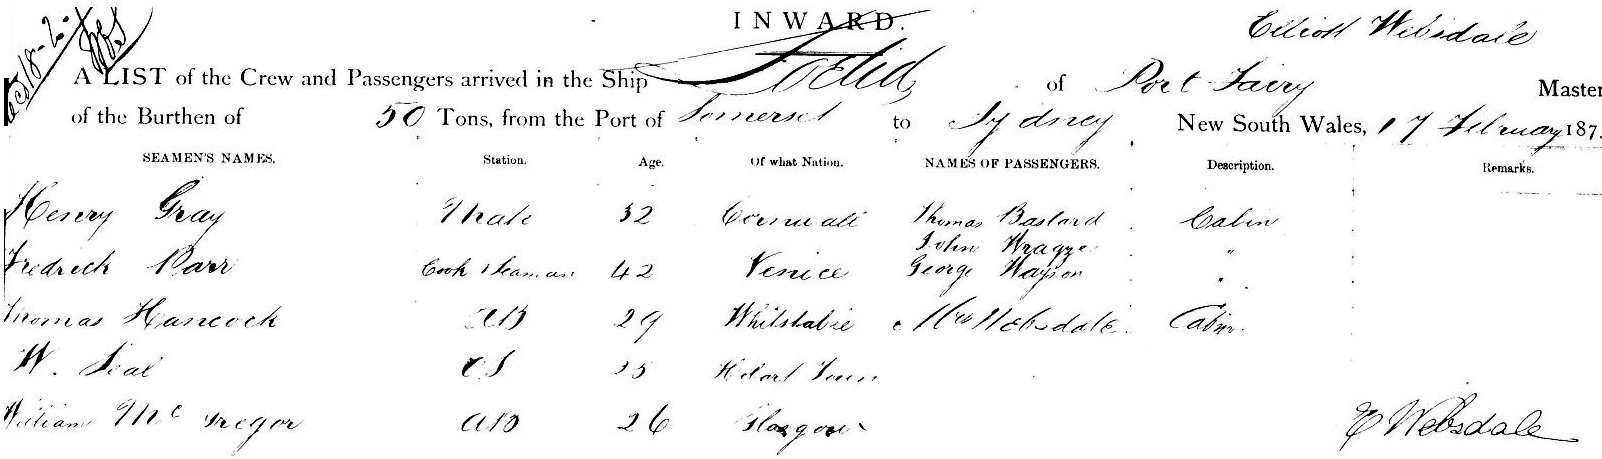 INWARD.
Elliott Websdale
A LIST of the Crew and Passengers arrived in the Ship of Port Fairy Master
of the Burthen of 50 Tons, from the Port of Somerset to Sydney New South Wales, 17 February 187
SEAMEN'S NAMES. Station. Age. Of what Nation. NAMES OF PASSENGERS. Description. Remarks.
Henery Gray Mate 32 Cornwall Thomas Bastard Cabin
John Wragge "
Fredrick Parr Cook & Seaman 42 Venice George "
Thomas Hancock AB 29 Whitstable Mrs Websdale Cabin
W. Seal OS Hobart Town
William Mc Gregor AB 26 Glasgow
E Websdale